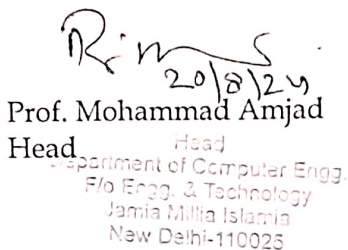 20/8/24
Prof. Mohammad Amjad
Head
Head
Department of Computer Engg.
F/o Engg. & Technology
Jamia Millia Islamia
New Delhi-110025